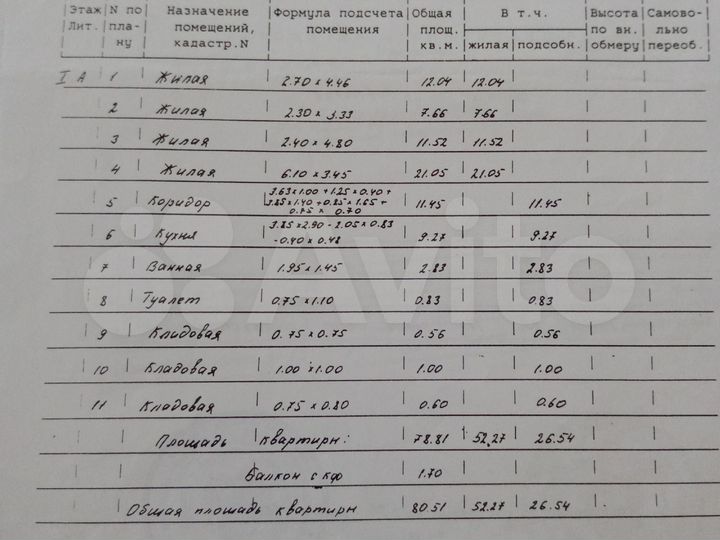 Этаж Лит. | N по плану | Назначение помещений, кадастр.N | Формула подсчета помещения | Общая площ. кв.м. | В т.ч. жилая | подсобн. | Высота по вн. обмеру | Самовольно переоб.
I A 1 Жилая 2.70 x 4.46 12.04 12.04
2 Жилая 2.30 x 3.33 7.66 7.66
3 Жилая 2.40 x 4.80 11.52 11.52
4 Жилая 6.10 x 3.45 21.05 21.05
5 Коридор 3.63x1.00 + 1.25x0.40 + 3.85x1.40 + 0.85x1.65 + 0.75 x 0.70 11.45 11.45
6 Кухня 3.85x2.90 - 2.05x0.83 - 0.40x0.48 9.27 9.27
7 Ванная 1.95 x 1.45 2.83 2.83
8 Туалет 0.75 x 1.10 0.83 0.83
9 Кладовая 0.75 x 0.75 0.56 0.56
10 Кладовая 1.00 x 1.00 1.00 1.00
11 Кладовая 0.75 x 0.80 0.60 0.60
Площадь квартиры: 78.81 52.27 26.54
Балкон с кф 1.70
Общая площадь квартиры 80.51 52.27 26.54
Avito